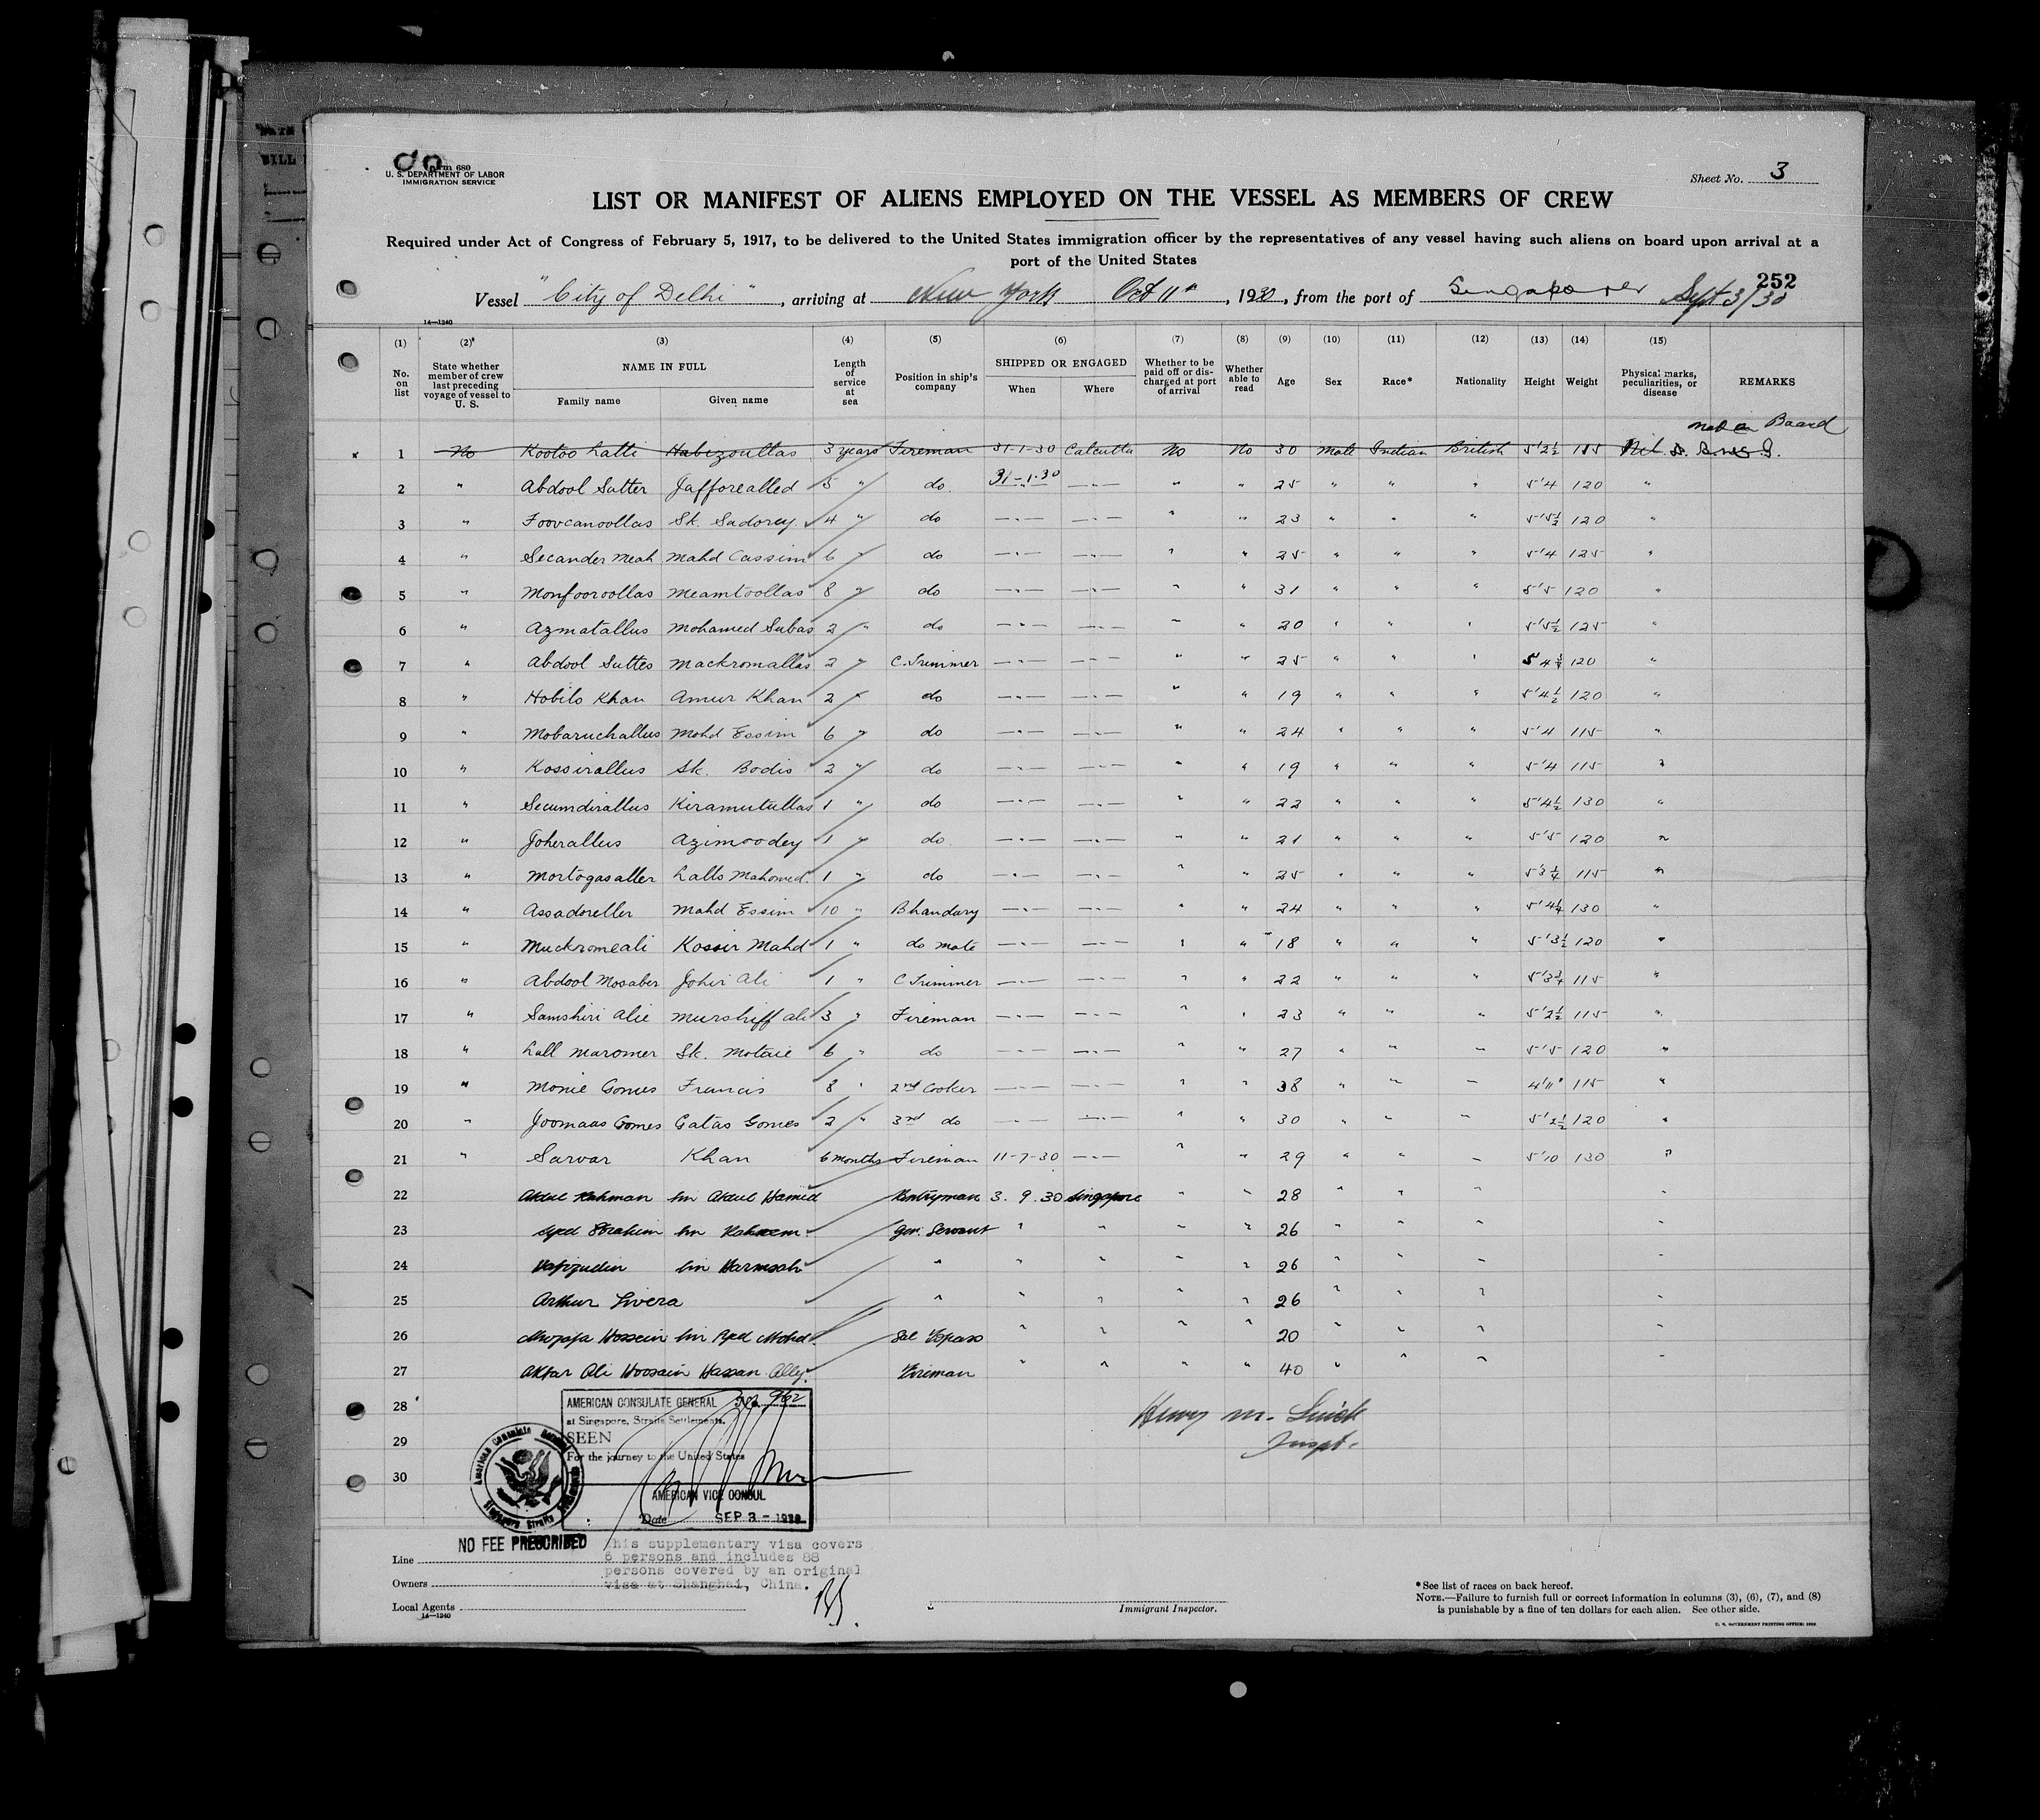 Form 680
U. S. DEPARTMENT OF LABOR
IMMIGRATION SERVICE
Sheet No. 3
LIST OR MANIFEST OF ALIENS EMPLOYED ON THE VESSEL AS MEMBERS OF CREW
Required under Act of Congress of February 5, 1917, to be delivered to the United States immigration officer by the representatives of any vessel having such aliens on board upon arrival at a
port of the United States
252
Vessel "City of Delhi", arriving at New York Oct 11th, 1930, from the port of Singapore Sept 3/30
14—1240
(1) (2) (3) (4) (5) (6) (7) (8) (9) (10) (11) (12) (13) (14) (15)
No. on list State whether member of crew last preceding voyage of vessel to U. S. NAME IN FULL Family name Given name Length of service at sea Position in ship's company SHIPPED OR ENGAGED When Where Whether to be paid off or discharged at port of arrival Whether able to read Age Sex Race* Nationality Height Weight Physical marks, peculiarities, or disease REMARKS
not on Board
1 No Kootoo Latti Habizoultas 3 years Fireman 31-1-30 Calcutta No No 30 Male Indian British 5'2½ 115 Nil
2 " Abdool Sutter Jafforealled 5 " do. 31-1-30 —"— " " 25 " " " 5'4 120 "
3 " Foovcanoollas Sk. Sadorey 4 " do —"— —"— " " 23 " " " 5'5½ 120 "
4 " Secander Meah Mahd Cassim 6 " do —"— —"— " " 25 " " " 5'4 125 "
5 " Monfooroollas Meamtoollas 8 " do —"— —"— " " 31 " " " 5'5 120 "
6 " Azmatallus Mohamed Subas 2 " do —"— —"— " " 20 " " " 5'5½ 125 "
7 " Abdool Suttes Mackromallas 2 " C. Trimmer —"— —"— " " 25 " " " 5'4½ 120 "
8 " Hobilo Khan Amur Khan 2 " do —"— —"— " " 19 " " " 5'4½ 120 "
9 " Mobaruchallus Mohd Essim 6 " do —"— —"— " " 24 " " " 5'4 115 "
10 " Kossirallus Sk. Bodis 2 " do —"— —"— " " 19 " " " 5'4 115 "
11 " Secumdirallus Kiramutullas 1 " do —"— —"— " " 22 " " " 5'4½ 130 "
12 " Joherallus Azimoodey 1 " do —"— —"— " " 21 " " " 5'5 120 "
13 " Mortogasaller Lalls Mahomed. 1 " do —"— —"— " " 25 " " " 5'3¼ 115 "
14 " Assadoreller Mahd Essim 10 " Bhandary —"— —"— " " 24 " " " 5'4¼ 130 "
15 " Muckromeali Kossir Mahd 1 " do mate —"— —"— " " 18 " " " 5'3½ 120 "
16 " Abdool Mosaber Johir Ali 1 " C Trimmer —"— —"— " " 22 " " " 5'3¾ 115 "
17 " Samshiri Alie Murshiff ali 3 " Fireman —"— —"— " " 23 " " " 5'2½ 115 "
18 " Lall Maromer Sk. Motaie 6 " do —"— —"— " " 27 " " " 5'5 120 "
19 " Monie Gomes Francis 8 " 2nd Cooker —"— —"— " " 38 " " " 4'11" 115 "
20 " Joomaas Gomes Gatas Gomes 2 " 3rd do —"— —"— " " 30 " " " 5'2½ 120 "
21 " Sarvar Khan 6 months Fireman 11-7-30 —"— " " 29 " " " 5'10 130 "
22 Abdul Rahman bin Abdul Hamid Pantryman 3. 9. 30 Singapore " " 28 " " " "
23 Syed Ibrahim bin Gen. Servant " " " " 26 " " " "
24 Hafizudin bin Hamsah " " " " " 26 " " " "
25 Arthur Livera " " " " " 26 " " " "
26 Hossein bin Syed Mohd. Sal Topass " " " " 20 " " " "
27 Aktar Ali Hoosain Hassan Ally. Fireman " " " " 40 " " " "
28
29
30
Henry M.
Inspt.
AMERICAN CONSULATE GENERAL No. 962
at Singapore, Straits Settlements.
SEEN
For the journey to the United States
AMERICAN VICE CONSUL
Date SEP 3 - 1930
American Consulate General
Singapore Straits Settlements
NO FEE PRESCRIBED
This supplementary visa covers
6 persons and includes 88
persons covered by an original
visa at Shanghai, China.
Line
Owners
Local Agents
14—1240
Immigrant Inspector.
*See list of races on back hereof.
NOTE.—Failure to furnish full or correct information in columns (3), (6), (7), and (8)
is punishable by a fine of ten dollars for each alien. See other side.
U. S. GOVERNMENT PRINTING OFFICE: